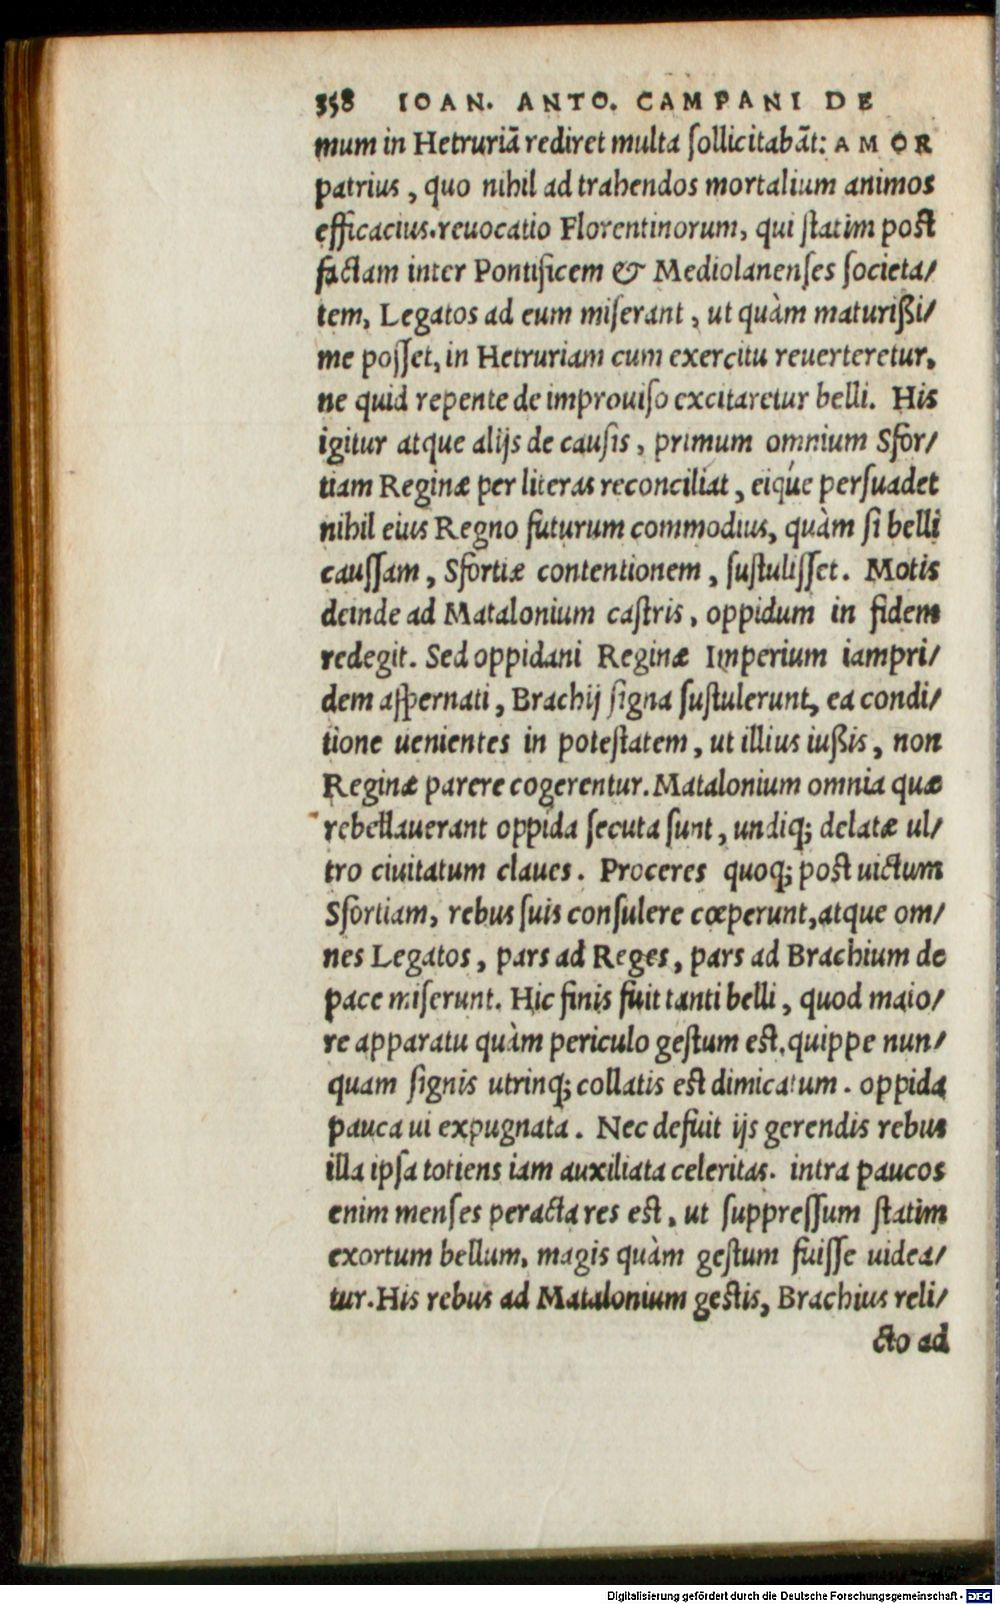 358 IOAN. ANTO. CAMPANI DE
mum in Hetruriā rediret multa sollicitabāt: AMOR
patrius, quo nihil ad trahendos mortalium animos
efficacius. reuocatio Florentinorum, qui statim post
factam inter Pontificem & Mediolanenses societa/
tem, Legatos ad eum miserant, ut quàm maturißi/
me posset, in Hetruriam cum exercitu reuerteretur,
ne quid repente de improuiso excitaretur belli. His
igitur atque alijs de causis, primum omnium Sfor/
tiam Reginæ per literas reconciliat, eiq́ue persuadet
nihil eius Regno futurum commodius, quàm si belli
caussam, Sfortiæ contentionem, sustulisset. Motis
deinde ad Matalonium castris, oppidum in fidem
redegit. Sed oppidani Reginæ Imperium iampri/
dem aspernati, Brachij signa sustulerunt, ea condi/
tione uenientes in potestatem, ut illius iußis, non
Reginæ parere cogerentur. Matalonium omnia quæ
rebellauerant oppida secuta sunt, undiq; delatæ ul/
tro ciuitatum claues. Proceres quoq; post uictum
Sfortiam, rebus suis consulere cœperunt, atque om/
nes Legatos, pars ad Reges, pars ad Brachium de
pace miserunt. Hic finis fuit tanti belli, quod maio/
re apparatu quàm periculo gestum est, quippe nun/
quam signis utrinq; collatis est dimicatum. oppida
pauca ui expugnata. Nec defuit ijs gerendis rebus
illa ipsa totiens iam auxiliata celeritas. intra paucos
enim menses peracta res est, ut suppressum statim
exortum bellum, magis quàm gestum fuisse uidea/
tur. His rebus ad Matalonium gestis, Brachius reli/
cto ad
Digitalisierung gefördert durch die Deutsche Forschungsgemeinschaft - DFG